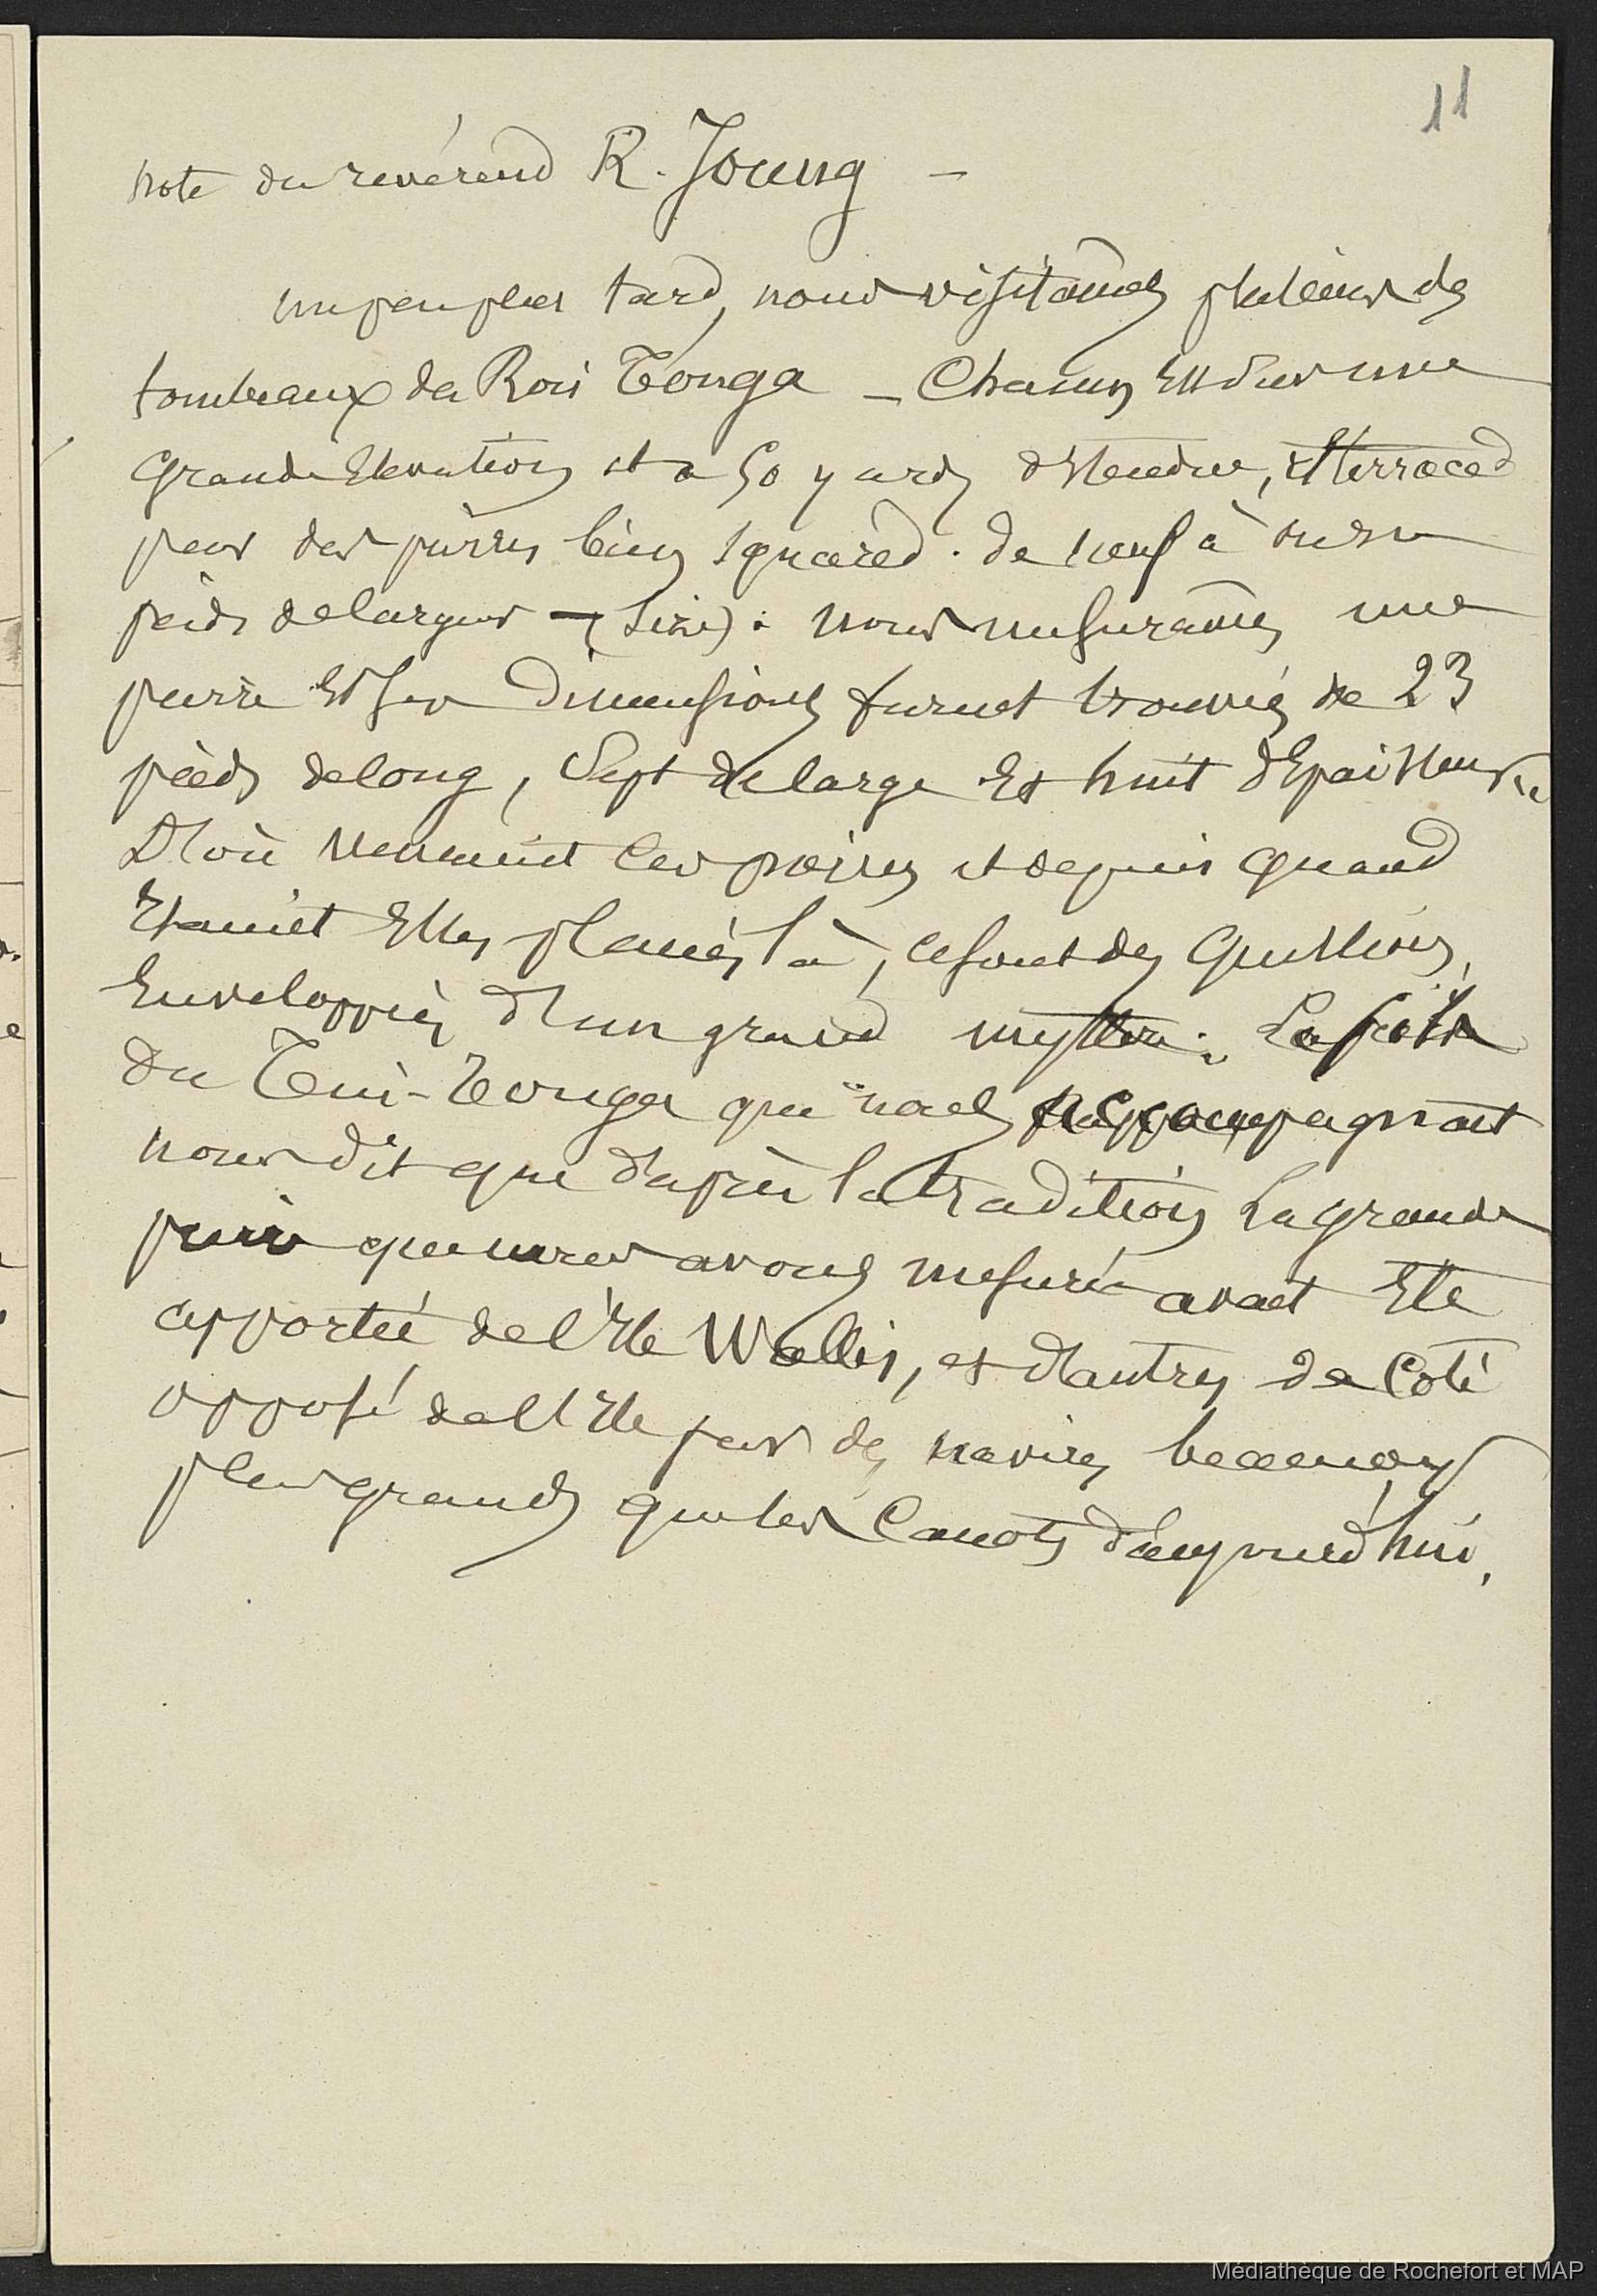 11
note du révérend R. Joung —
un peu plus tard, nous visitâmes plusieurs des
tombeaux des Rois Tonga — Chacun est sur une
grande élevation et a 50 yards d'étendue, et terraced
par des pierres bien squared. de neuf à onze
pieds de largeur — (size). nous mesurâmes une
pierre et ses dimensions furent trouvées de 23
pieds de long, sept de large et huit d'épaisseur
D'où venaient ces pierres et depuis quand
étaient elles placées là, ce sont des questions
enveloppées d'un grand mystère. Le
du Tuii-Tonga qui nous accompagnait
nous dit que d'après la tradition la grande
pierre que nous avons mesurée avait été
apportée de l'Ile Wallis, et d'autres de coté
opposé de l'Ile par des navires beaucoup
plus grands que les canots d'aujourd'hui.
Médiathèque de Rochefort et MAP